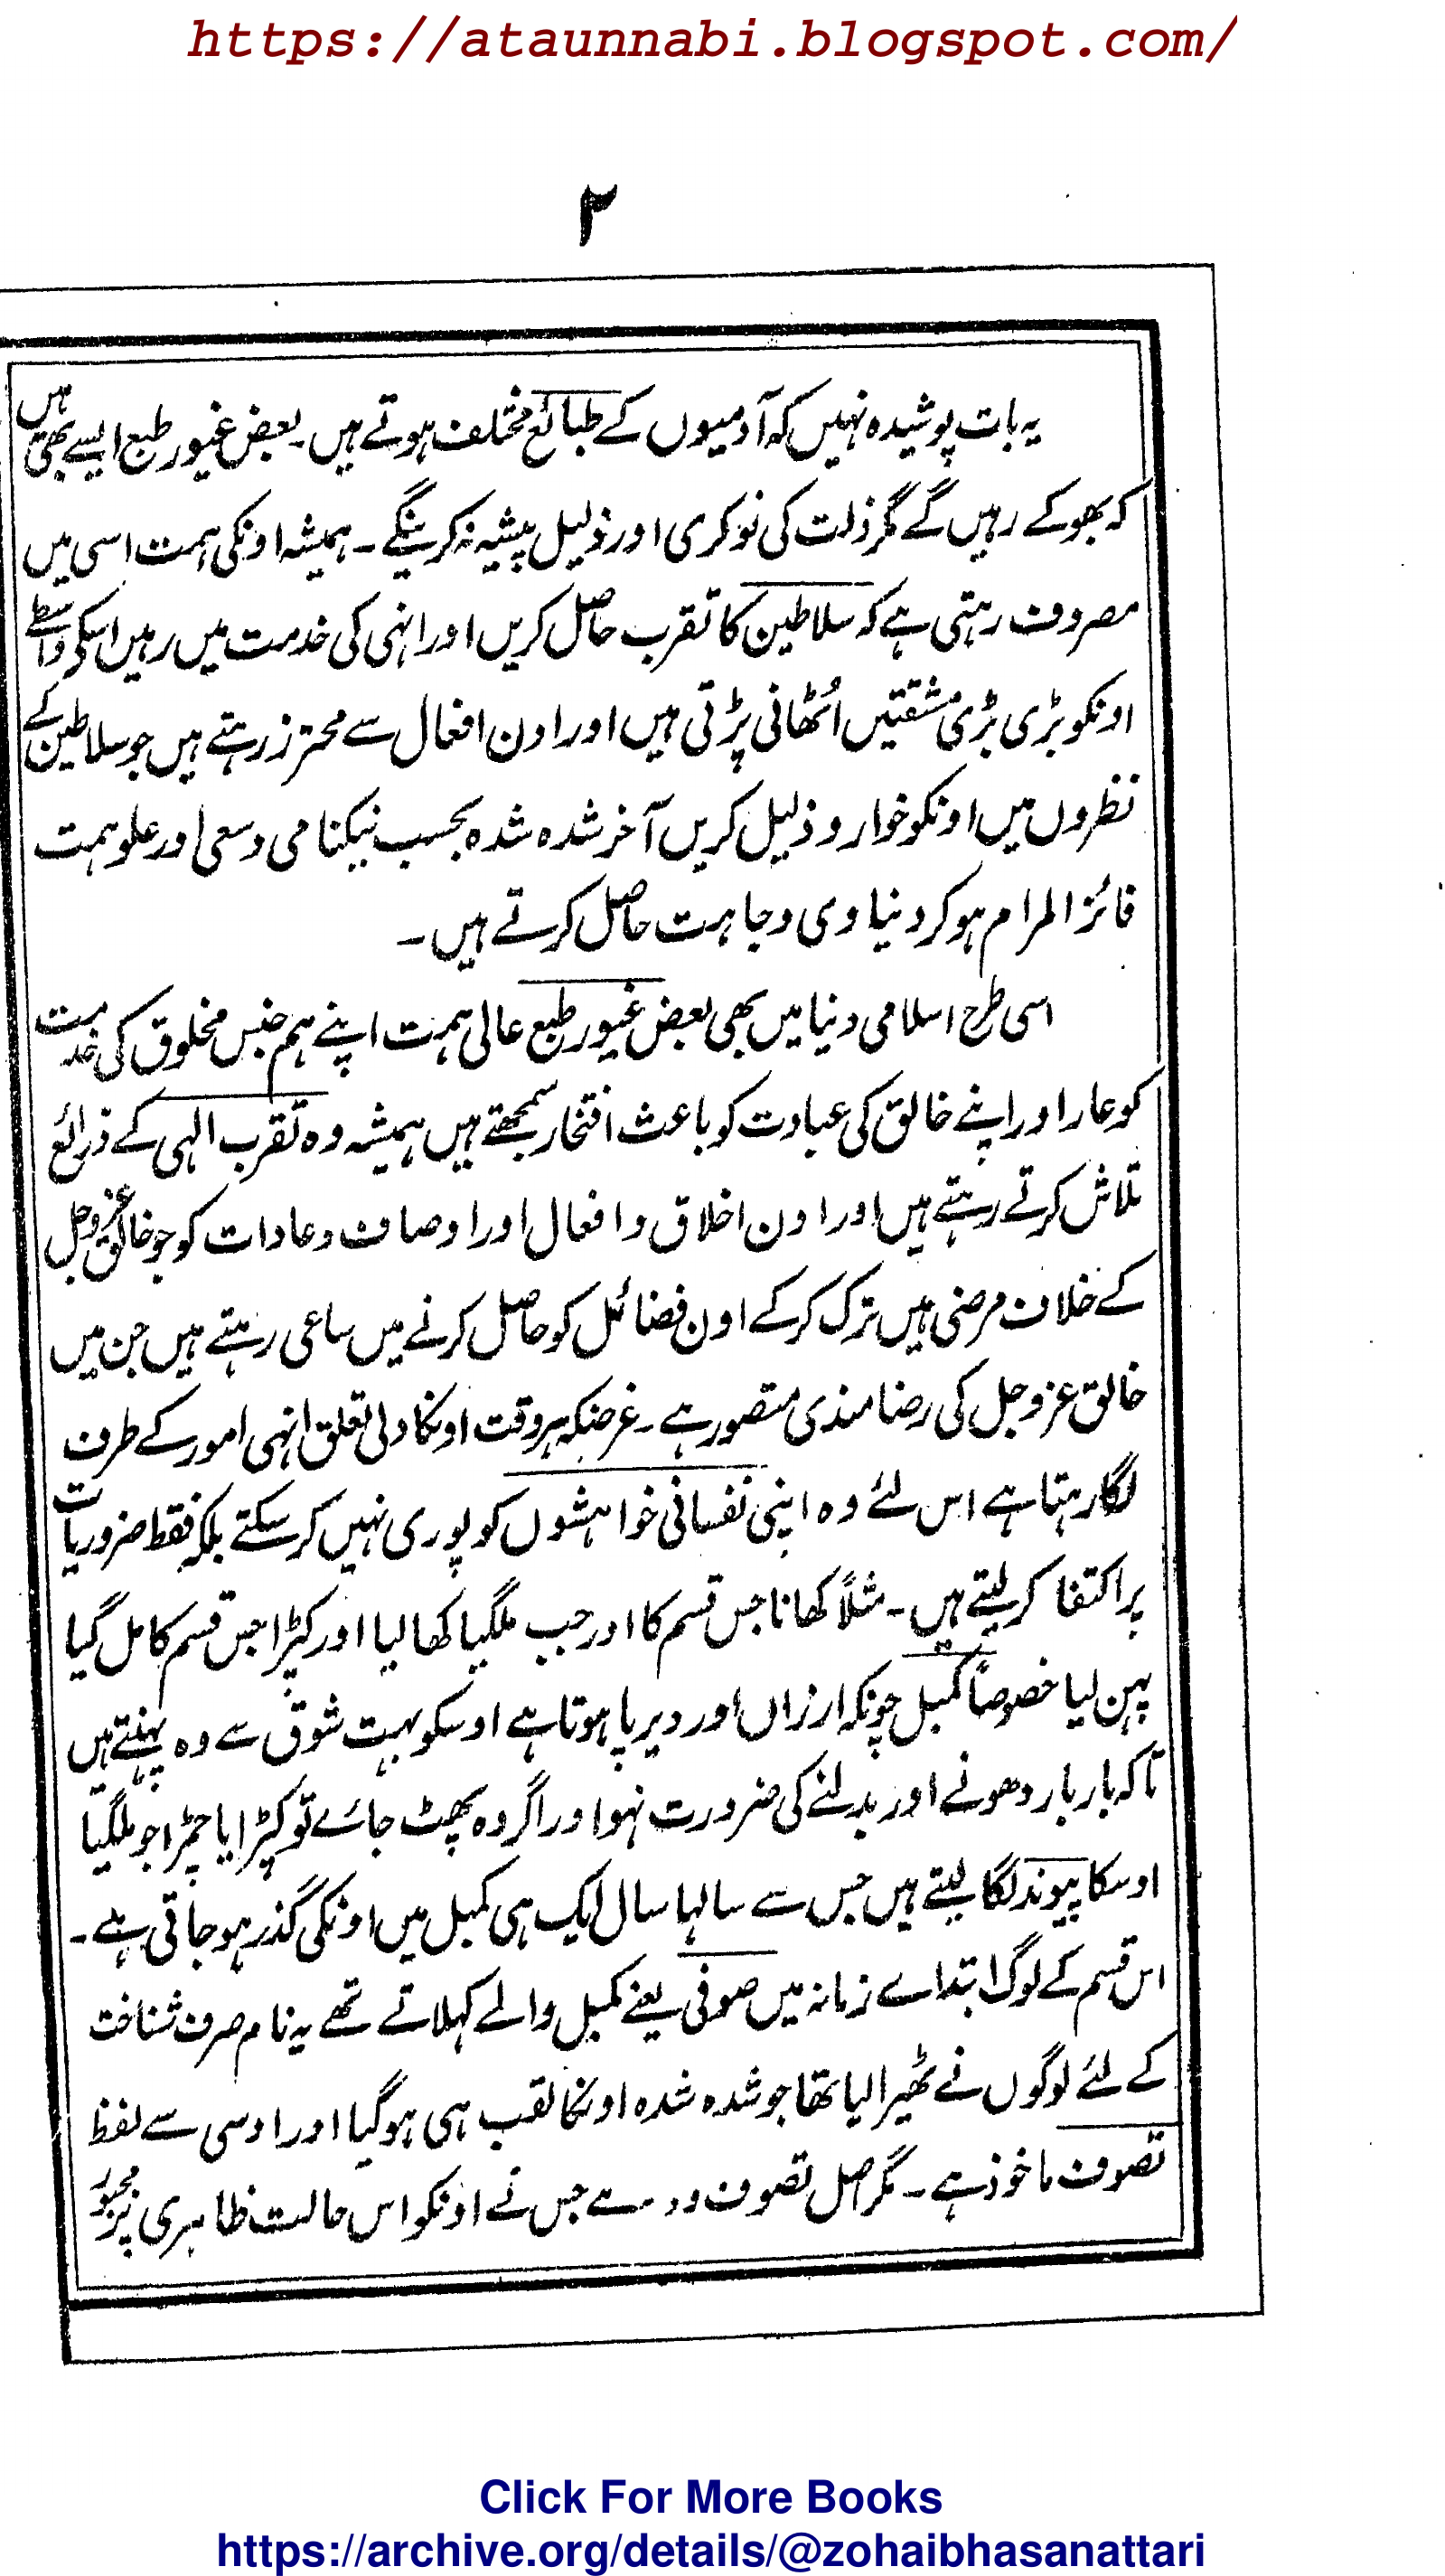 https://ataunnabi.blogspot.com/
۲
یہ بات پوشیدہ نہیں کہ آدمیوں کے طبائع مختلف ہوتے ہیں۔ بعض غیور طبع ایسے بھی ہیں
کہ بھوکے رہیں گے مگر ذلت کی نوکری اور ذلیل پیشہ نہ کرینگے۔ ہمیشہ اونکی ہمت اسی میں
مصروف رہتی ہے کہ سلاطین کا تقرب حاصل کریں اور انہی کی خدمت میں رہیں اسکے واسطے
اونکو بڑی بڑی مشقتیں اُٹھانی پڑتی ہیں اور اون افعال سے محترز رہتے ہیں جو سلاطین کے
نظروں میں اونکو خوار و ذلیل کریں آخر شدہ شدہ بحسب نیکنامی وسعی اور علو ہمت
فائز المرام ہو کر دنیاوی وجاہت حاصل کرتے ہیں۔
اسی طرح اسلامی دنیا میں بھی بعض غیور طبع عالی ہمت اپنے ہم جنس مخلوق کی خدمت
کو عار اور اپنے خالق کی عبادت کو باعث افتخار سمجھتے ہیں ہمیشہ وہ تقرب الہی کے ذرائع
تلاش کرتے رہتے ہیں اور اون اخلاق و افعال اور اوصاف و عادات کو جو خالق عزوجل
کے خلاف مرضی ہیں ترک کر کے اون فضائل کو حاصل کرنے میں ساعی رہتے ہیں جن میں
خالق عزوجل کی رضامندی متصور ہے۔ غرضکہ ہر وقت اونکا دلی تعلق انہی امور کے طرف
لگا رہتا ہے اس لئے وہ اپنی نفسانی خواہشوں کو پوری نہیں کر سکتے بلکہ فقط ضروریات
پر اکتفا کر لیتے ہیں۔ مثلاً کھانا جس قسم کا اور جب ملگیا کھا لیا اور کپڑا جس قسم کا مل گیا
پہن لیا خصوصاً کمبل چونکہ ارزاں اور دیر پا ہوتا ہے اوسکو بہت شوق سے وہ پہنتے ہیں
تاکہ بار بار دھونے اور بدلنے کی ضرورت نہو اور اگر وہ پھٹ جائے تو کپڑا یا چمڑا جو ملگیا
اوسکا پیوند لگا لیتے ہیں جس سے سالہا سال ایک ہی کمبل میں اونکی گذر ہو جاتی ہے۔
اس قسم کے لوگ ابتداے زمانہ میں صوفی یعنے کمبل والے کہلاتے تھے یہ نام صرف شناخت
کے لئے لوگوں نے ٹھیرا لیا تھا جو شدہ شدہ اونکا لقب ہی ہو گیا اور اوسی سے لفظ
تصوف ماخوذ ہے۔ مگر اصل تصوف وہ ہے جس نے اونکو اس حالت ظاہری پر مجبور
Click For More Books
https://archive.org/details/@zohaibhasanattari